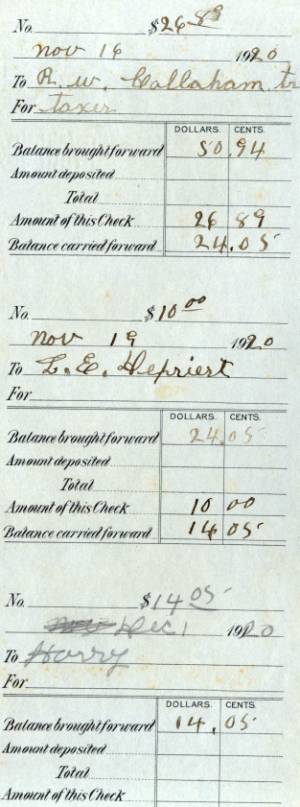 No. $26 89
Nov 16 1920
To R. W. Callaham, tr
For taxes
DOLLARS. CENTS.
Balance brought forward 50.94
Amount deposited
Total
Amount of this Check 26 89
Balance carried forward 24.05
No. $10 00
Nov 19 1920
To L. E. Depriest
For
DOLLARS. CENTS.
Balance brought forward 24.05
Amount deposited
Total
Amount of this Check 10 00
Balance carried forward 14 05
No. $14 05
Dec 1 1920
To Harry
For
DOLLARS. CENTS.
Balance brought forward 14.05
Amount deposited
Total
Amount of this Check